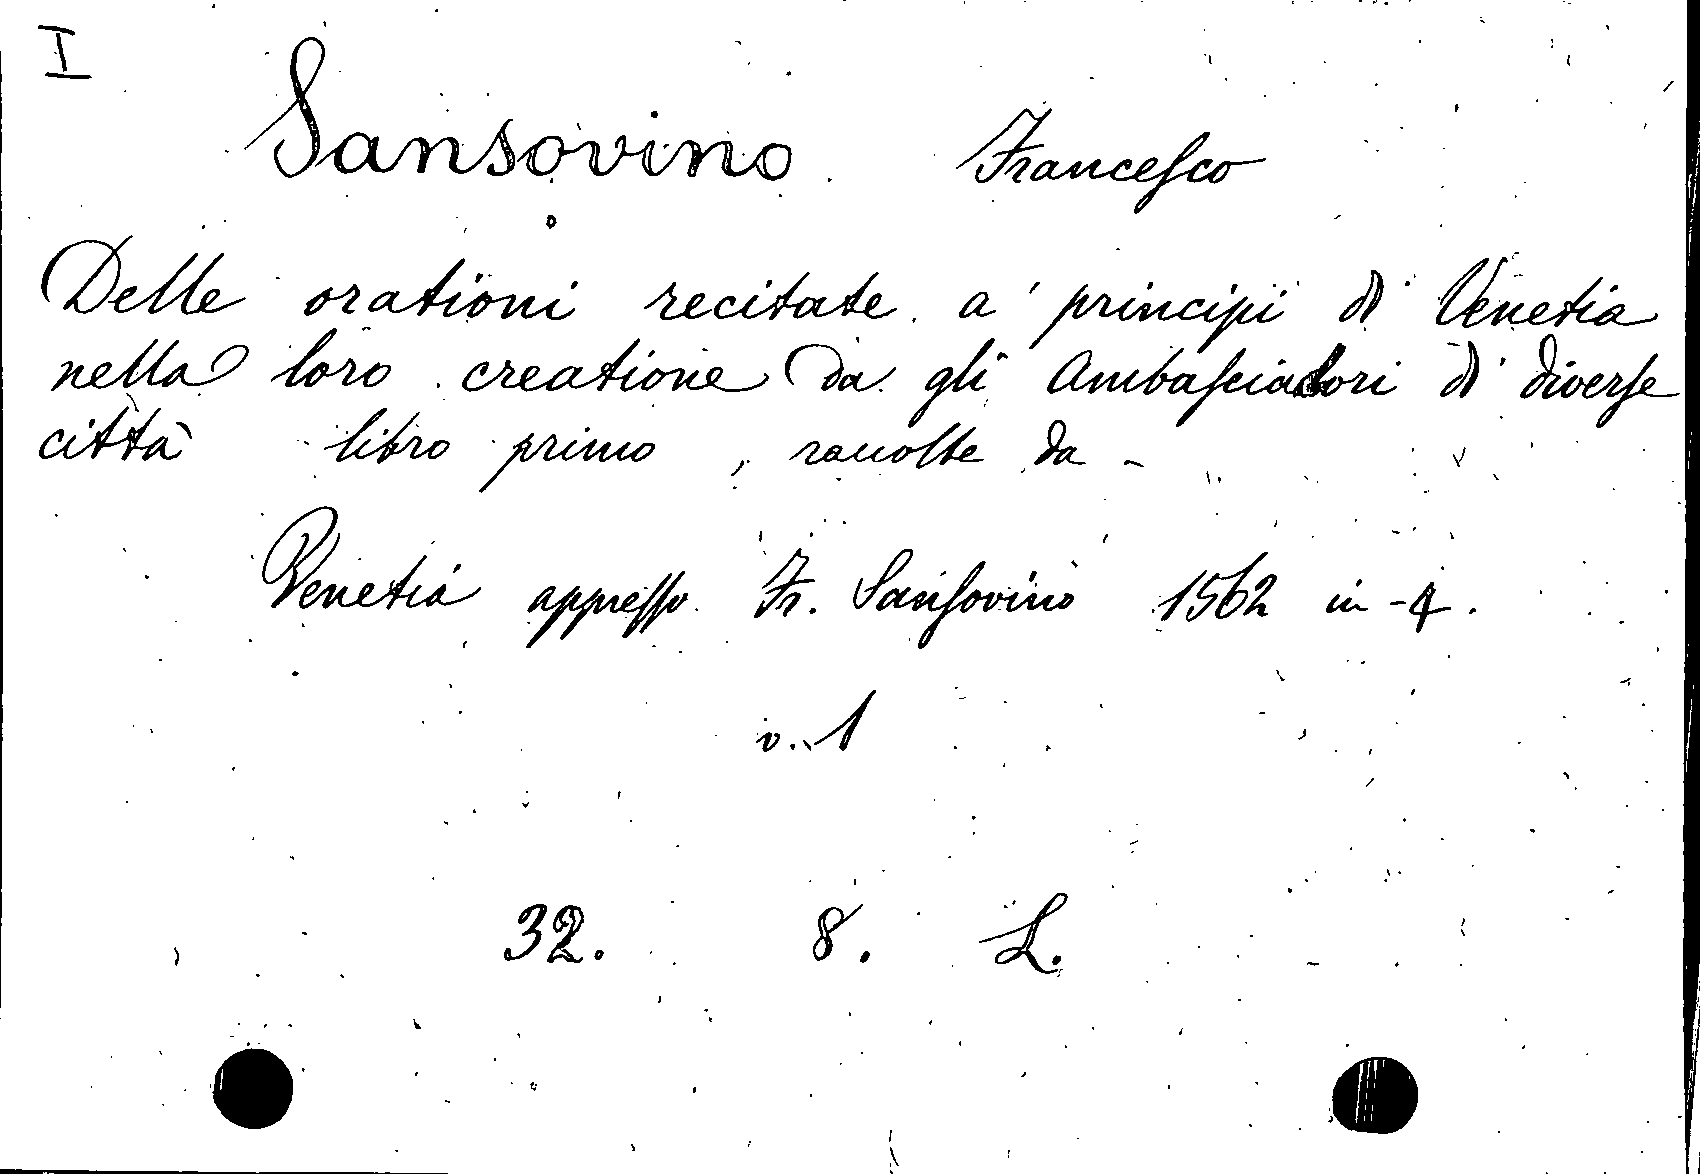 I
Sansovino Francesco
Delle orationi recitate a' principi di Venetia
nella loro creatione da gli Ambasciadori di diverse
città libro primo, raccolte da -
Venetia appresso Fr. Sansovino 1562 in-4.
v. 1
32. 8. L.